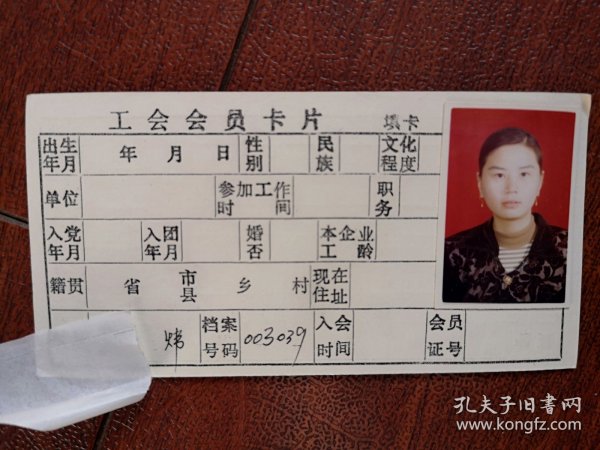 工会会员卡片 填卡
出生年月 年 月 日 性别 民族 文化程度
单位 参加工作时间 职务
入党年月 入团年月 婚否 本企业工龄
籍贯 省 市县 乡 村 现在住址
炜 档案号码 003039 入会时间 会员证号
孔夫子旧书网
www.kongfz.com